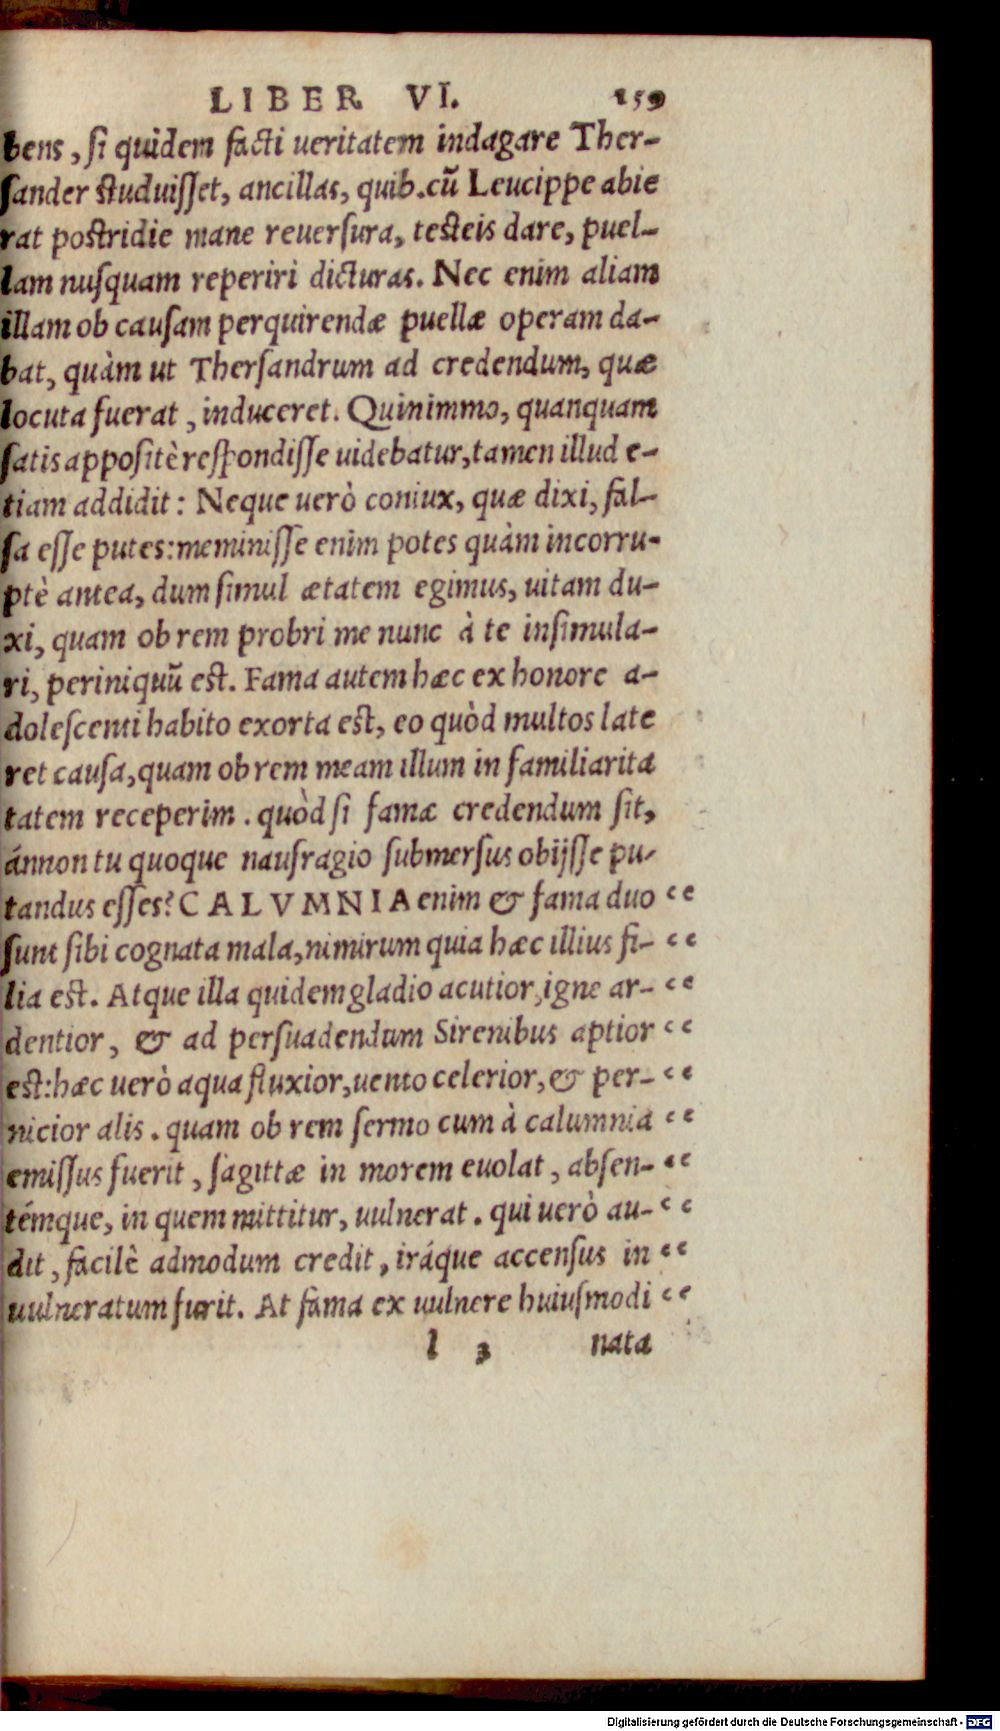 LIBER VI. 159
bens, si quidem facti ueritatem indagare Ther-
sander studuisset, ancillas, quib.cũ Leucippe abie
rat postridie mane reuersura, testeis dare, puel-
lam nusquam reperiri dicturas. Nec enim aliam
illam ob causam perquirendæ puellæ operam da-
bat, quàm ut Thersandrum ad credendum, quæ
locuta fuerat, induceret. Quinimmo, quanquam
satis appositè respondisse uidebatur, tamen illud e-
tiam addidit: Neque uerò coniux, quæ dixi, fal-
sa esse putes: meminisse enim potes quàm incorru-
ptè antea, dum simul ætatem egimus, uitam du-
xi, quam ob rem probri me nunc à te insimula-
ri, periniquũ est. Fama autem hæc ex honore a-
dolescenti habito exorta est, eo quòd multos late
ret causa, quam ob rem meam illum in familiarita
tatem receperim. quòd si famæ credendum sit,
ánnon tu quoque naufragio submersus obijsse pu-
tandus esses? CALVMNIA enim & fama duo “
sunt sibi cognata mala, nimirum quia hæc illius fi- “
lia est. Atque illa quidem gladio acutior, igne ar- “
dentior, & ad persuadendum Sirenibus aptior “
est: hæc uerò aqua fluxior, uento celerior, & per- “
nicior alis. quam ob rem sermo cum à calumnia “
emissus fuerit, sagittæ in morem euolat, absen- “
témque, in quem mittitur, uulnerat. qui uerò au- “
dit, facilè admodum credit, iráque accensus in “
uulneratum furit. At fama ex uulnere huiusmodi “
l 3 nata
Digitalisierung gefördert durch die Deutsche Forschungsgemeinschaft - DFG